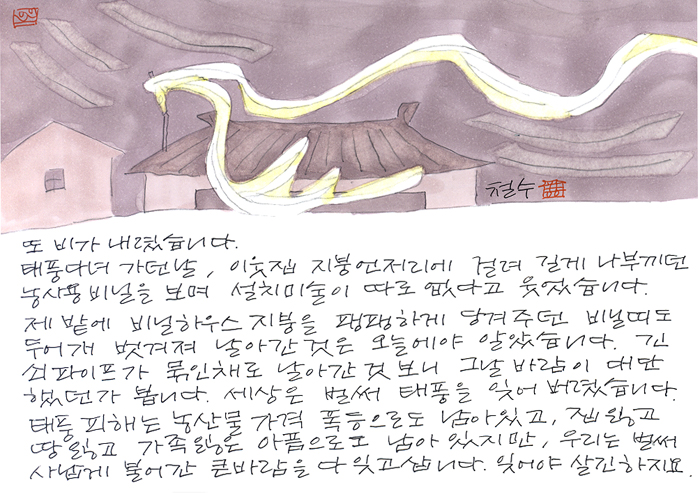 철수
또 비가 내렸습니다.
태풍다녀 가던날, 이웃집 지붕언저리에 걸려 길게 나부끼던
농사용비닐을 보며 설치미술이 따로 없다고 웃었습니다.
제 밭에 비닐하우스 지붕을 팽팽하게 당겨주던 비닐띠도
두어개 벗겨져 날아간것은 오늘에야 알았습니다. 긴
쇠파이프가 묶인채로 날아간것 보니 그날 바람이 대단
했던가 봅니다. 세상은 벌써 태풍을 잊어 버렸습니다.
태풍 피해는 농산물 가격 폭등으로도 남아있고, 집잃고
땅잃고 가족잃은 아픔으로도 남아 있지만, 우리는 벌써
사납게 불어간 큰바람을 다 잊고삽니다. 잊어야 살긴하지요.